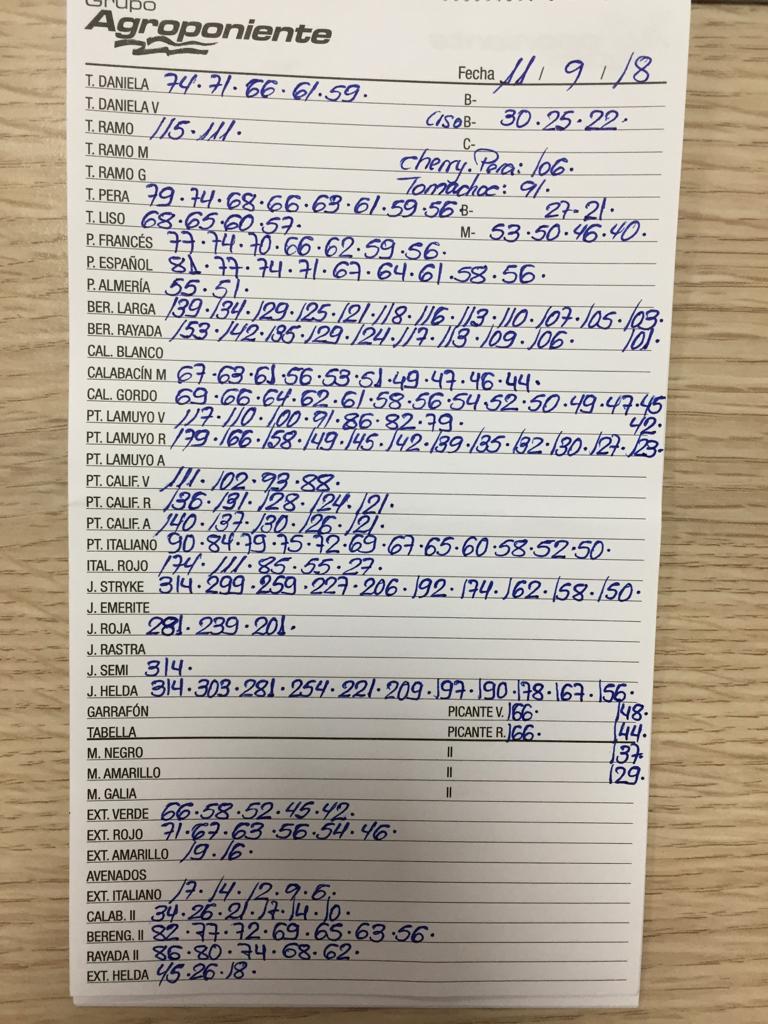 Grupo
Agroponiente
Fecha 11 / 9 / 18
T. DANIELA 74.71.66.61.59. B-
T. DANELA V LISO B- 30.25.22.
T. RAMO 115.111. C-
T. RAMO M cherry.Pera: 106.
T. RAMO G Tomachoc: 91.
T. PERA 79.74.68.66.63.61.59.56 B- 27.21.
T. LISO 68.65.60.57. M- 53.50.46.40.
P. FRANCÉS 77.74.70.66.62.59.56.
P. ESPAÑOL 81.77.74.71.67.64.61.58.56.
P. ALMERÍA 55.51.
BER. LARGA 139.134.129.125.121.118.116.113.110.107.105.103.
BER. RAYADA 153.142.135.129.124.117.113.109.106. 101.
CAL. BLANCO
CALABACÍN M 67.63.61.56.53.51.49.47.46.44.
CAL. GORDO 69.66.64.62.61.58.56.54.52.50.49.47.45
42.
PT. LAMUYO V 117.110.100.91.86.82.79.
PT. LAMUYO R 179.166.158.149.145.142.139.135.132.130.127.123.
PT. LAMUYO A
PT. CALIF. V 111.102.93.88.
PT. CALIF. R 136.131.128.124.121.
PT. CALIF. A 140.137.130.126.121.
PT. ITALIANO 90.84.79.75.72.69.67.65.60.58.52.50.
ITAL. ROJO 174.111.85.55.27.
J. STRYKE 314.299.259.227.206.192.174.162.158.150.
J. EMERITE
J. ROJA 281.239.201.
J. RASTRA
J. SEMI 314.
J. HELDA 314.303.281.254.221.209.197.190.178.167.156.
GARRAFÓN PICANTE V. 166. 148.
TABELLA PICANTE R. 166. 144.
M. NEGRO II 137.
M. AMARILLO II 129.
M. GALIA II
EXT. VERDE 66.58.52.45.42.
EXT. ROJO 71.67.63.56.54.46.
EXT. AMARILLO 19.16.
AVENADOS
EXT. ITALIANO 17.14.12.9.6.
CALAB. II 34.26.21.17.14.10.
BERENG. II 82.77.72.69.65.63.56.
RAYADA II 86.80.74.68.62.
EXT. HELDA 45.26.18.